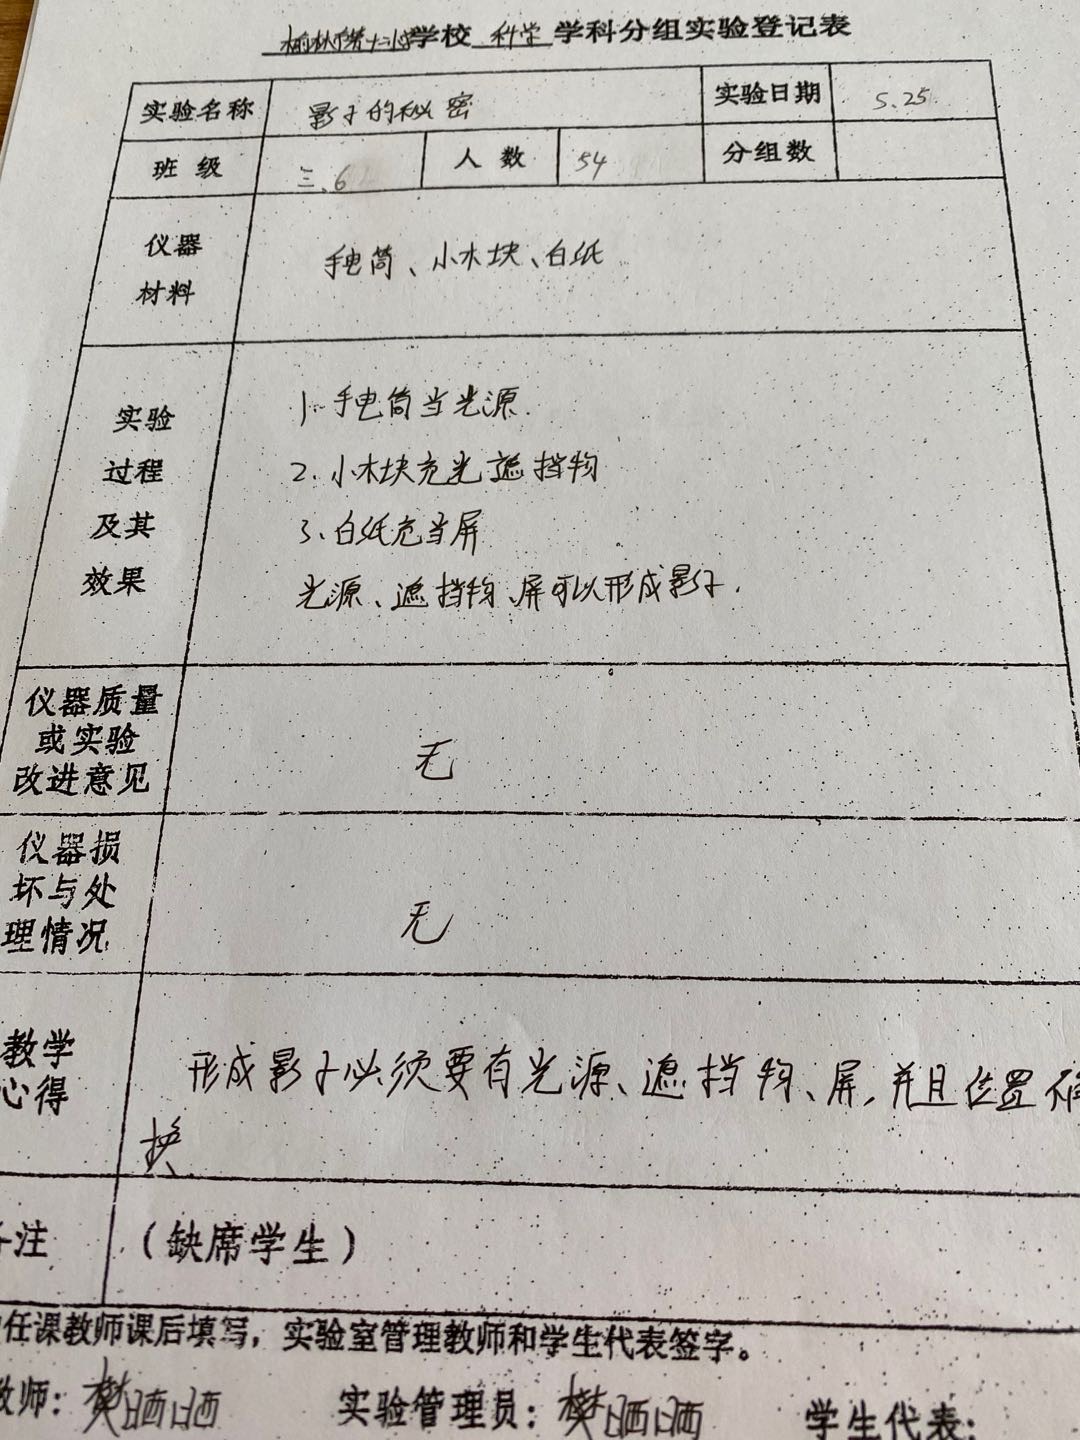 榆林市第十二小学学校 科学 学科分组实验登记表
实验名称 影子的秘密 实验日期 5.25
班 级 三.6 人 数 54 分组数
仪器
材料
手电筒、小木块、白纸
实验
过程
及其
效果
1. 手电筒当光源.
2. 小木块充光遮挡物
3、白纸充当屏
光源、遮挡物、屏可以形成影子.
仪器质量
或实验
改进意见
无
仪器损
坏与处
理情况
无
教学
心得
形成影子必须要有光源、遮挡物、屏,并且位置不
换
注 (缺席学生)
任课教师课后填写，实验室管理教师和学生代表签字。
教师: 樊晒晒 实验管理员: 樊晒晒 学生代表: